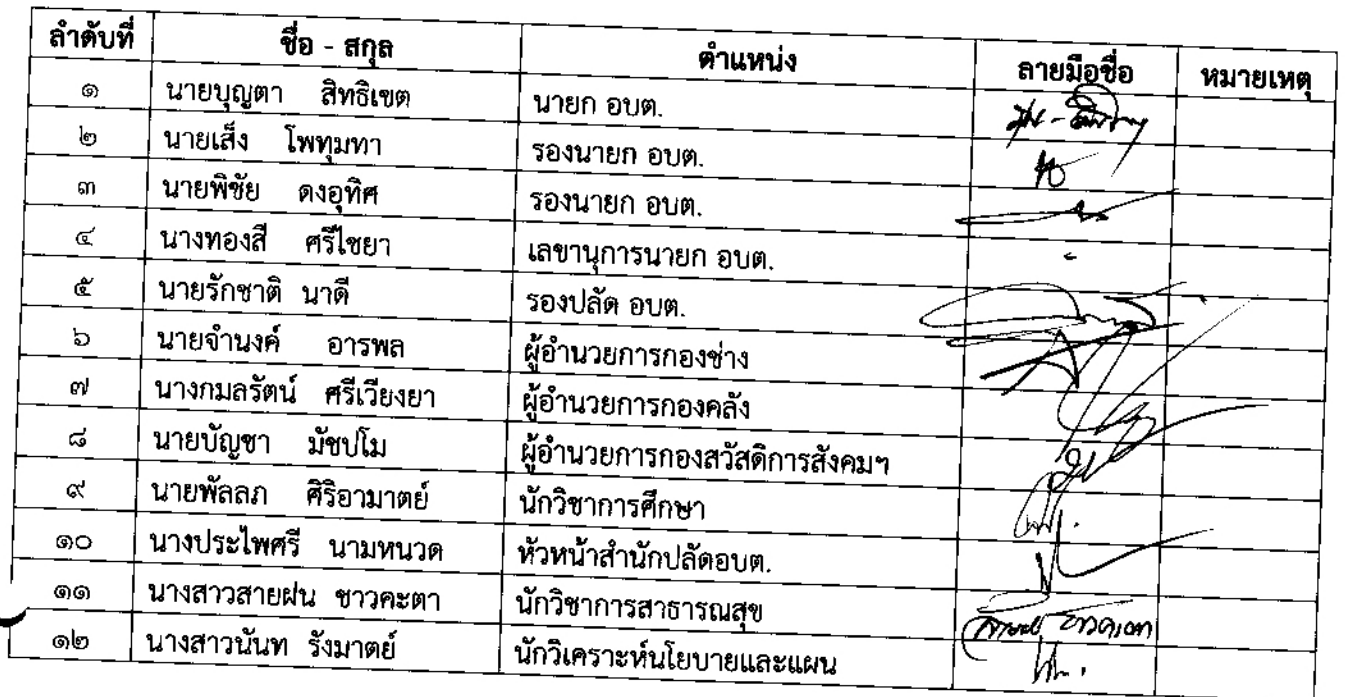 ลำดับที่ ชื่อ - สกุล ตำแหน่ง ลายมือชื่อ หมายเหตุ
๑ นายบุญตา สิทธิเขต นายก อบต.
๒ นายเส็ง โพทุมทา รองนายก อบต.
๓ นายพิชัย ดงอุทิศ รองนายก อบต.
๔ นางทองสี ศรีไชยา เลขานุการนายก อบต. -
๕ นายรักชาติ นาดี รองปลัด อบต.
๖ นายจำนงค์ อารพล ผู้อำนวยการกองช่าง
๗ นางกมลรัตน์ ศรีเวียงยา ผู้อำนวยการกองคลัง
๘ นายบัญชา มัชปโม ผู้อำนวยการกองสวัสดิการสังคมฯ
๙ นายพัลลภ ศิริอามาตย์ นักวิชาการศึกษา
๑๐ นางประไพศรี นามหนวด หัวหน้าสำนักปลัดอบต.
๑๑ นางสาวสายฝน ชาวคะตา นักวิชาการสาธารณสุข
๑๒ นางสาวนันท รังมาตย์ นักวิเคราะห์นโยบายและแผน